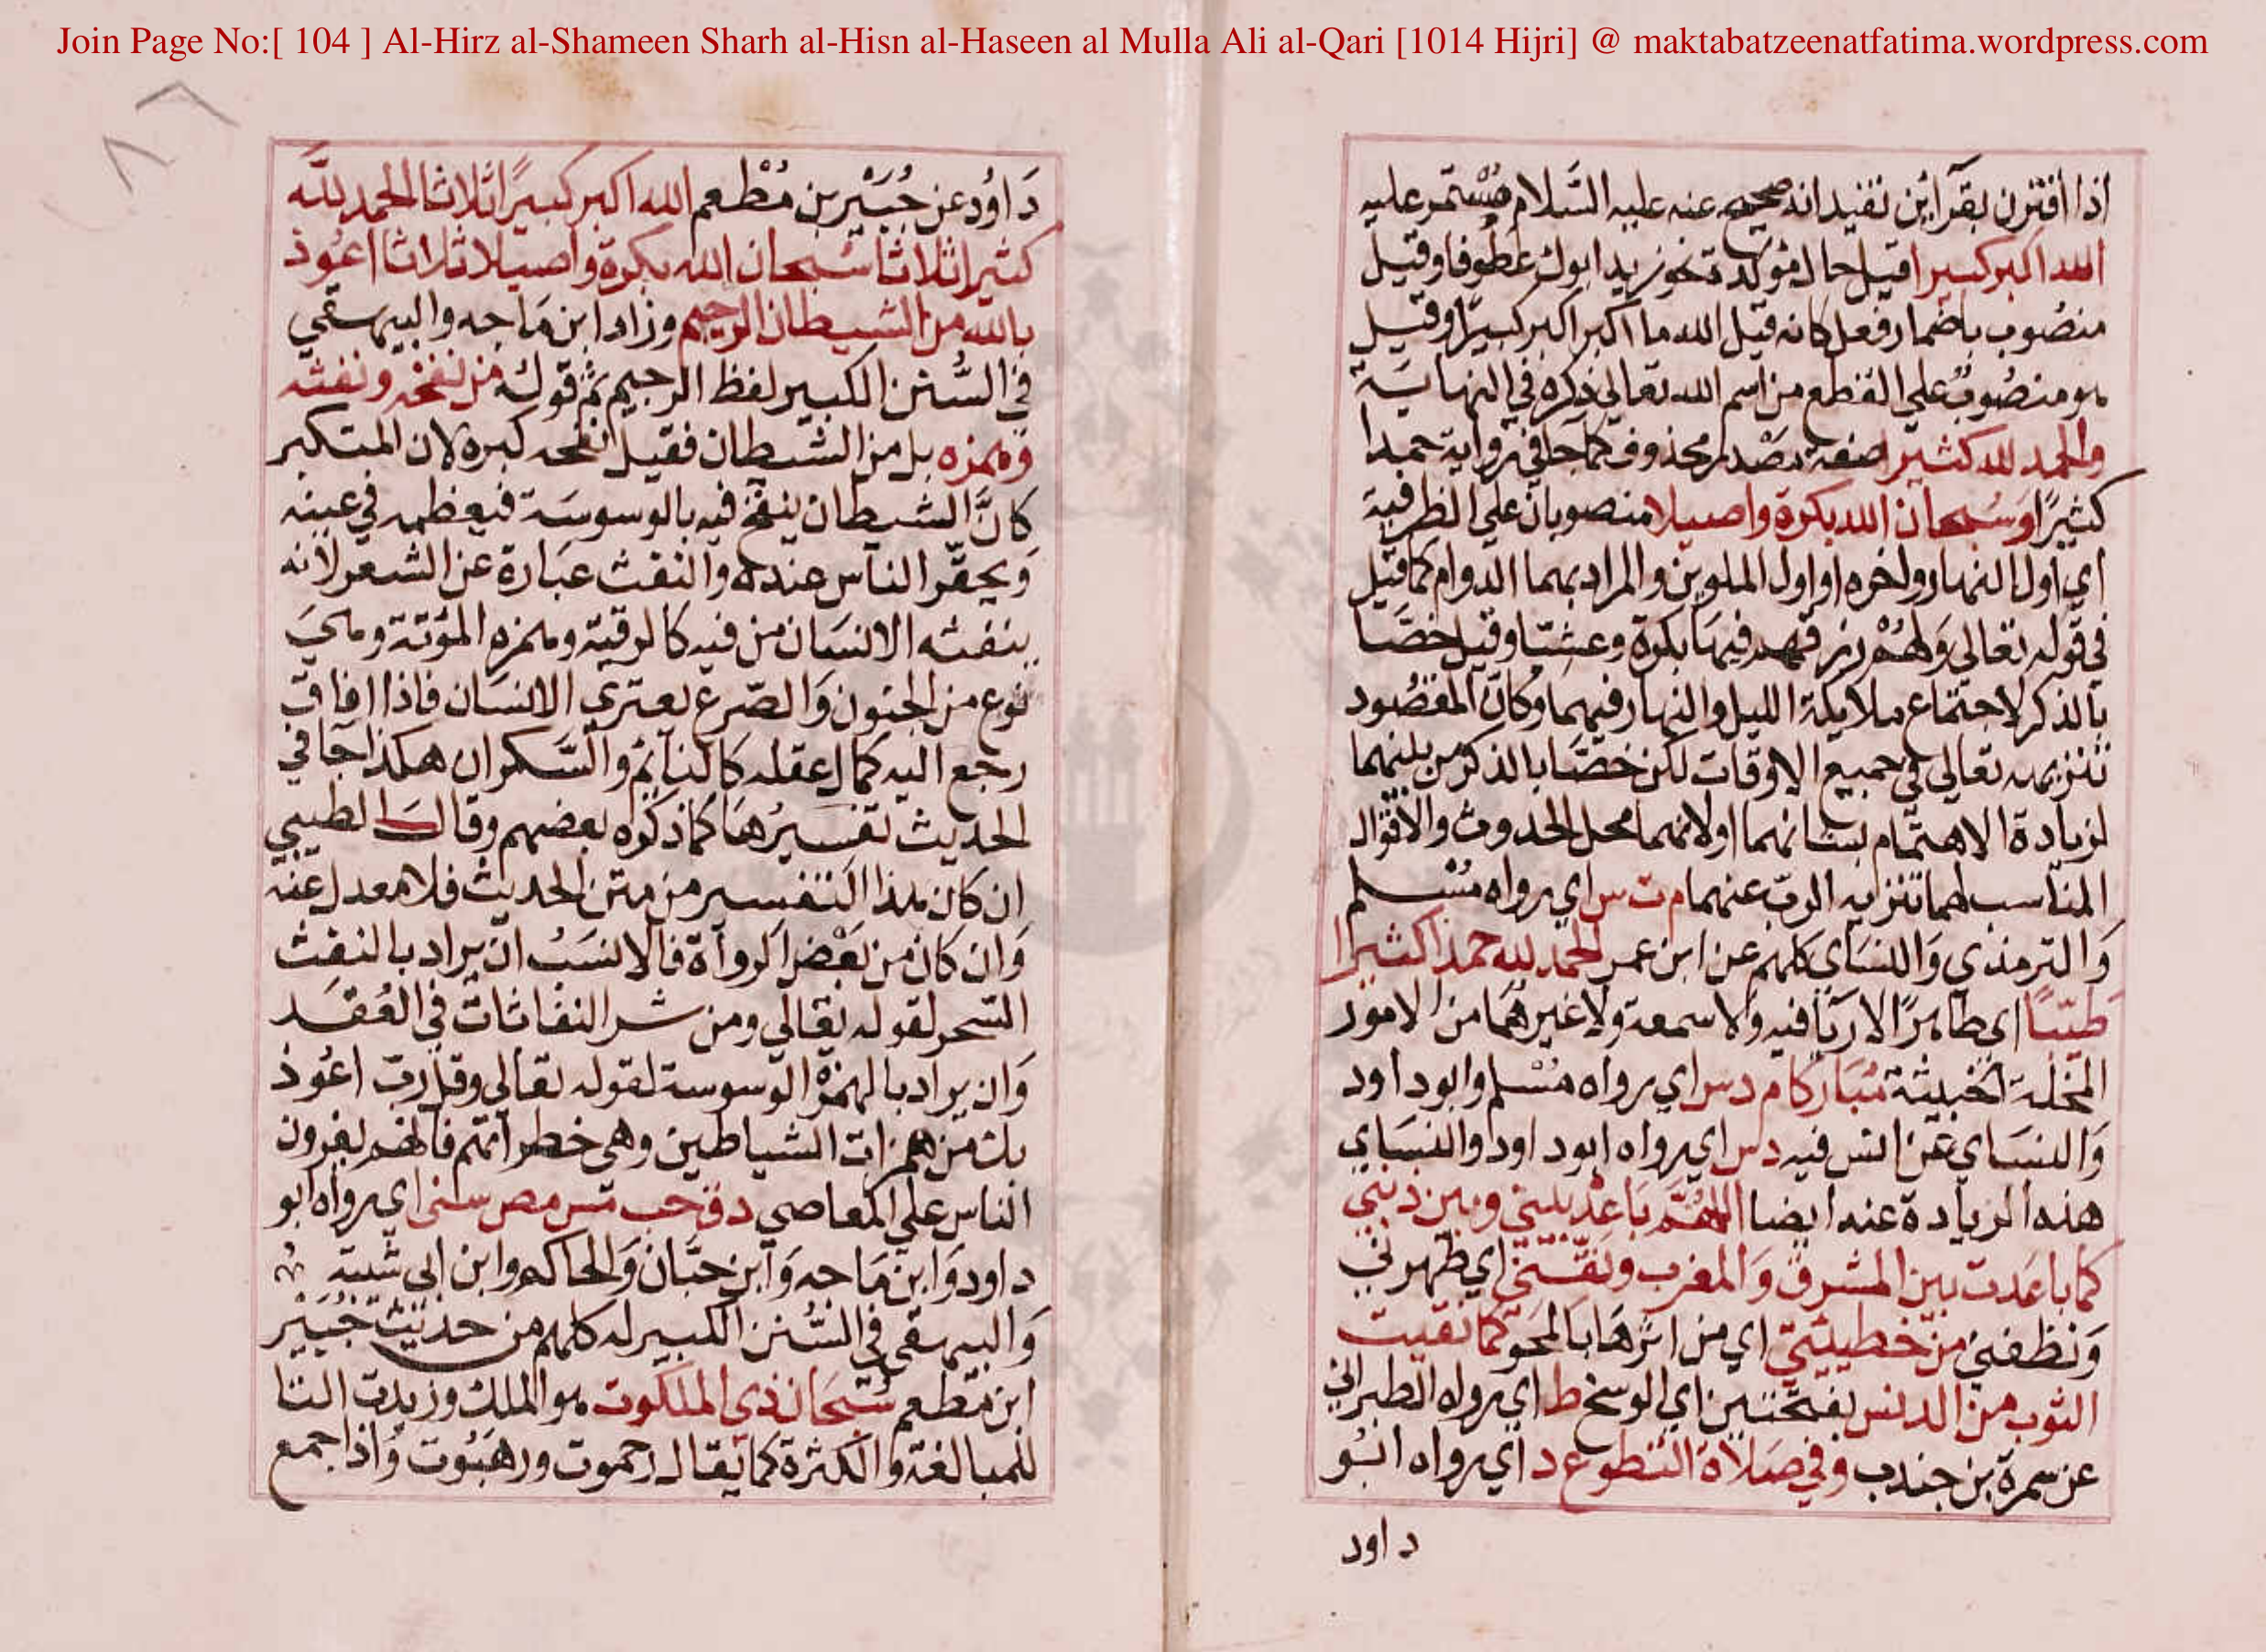 Join Page No:[ 104 ] Al-Hirz al-Shameen Sharh al-Hisn al-Haseen al Mulla Ali al-Qari [1014 Hijri] @ maktabatzeenatfatima.wordpress.com
اذا اقترن بقرائن تفيد انه صحيح عنه عليه السلام مستمر عليه
الله اكبر كبيرا قيل حال مؤكدة نحو زيد ابوك عطوفا وقيل
منصوب باضمار فعل كانه قيل الله ما اكبر اكبر كبيرا وقيل
هو منصوب على القطع من اسم الله تعالى ذكره في النهاية
والحمد لله كثيرا صفة مصدر محذوف كما جا في رواية حمدا
كثيرًا وسبحان الله بكرة واصيلا منصوبان علي الظرفية
اي اول النهار واخره او اول الملوين والمراد بهما الدوام كما قيل
في قوله تعالي ولهم رزقهم فيها بكرة وعشيا وقيل خصا
بالذكر لاجتماع ملايكة الليل والنهار فيهما وكان المقصود
تنزيهه تعالي في جميع الاوقات لكن خصا بالذكر من بينهما
لزيادة الاهتمام بشانهما او لانهما محل الحدوث والافول
المناسب لهما تنزيه الرب عنهما م ت س اي رواه مسلم
والترمذي والنساي كلهم عن ابن عمر الحمد لله حمدا كثيرا
طيبا اي طاهرًا لا ريا فيه ولا سمعة ولا غيرهما من الامور
المخلة الخبيثة مباركا م د س اي رواه مسلم وابو داود
والنساي عن انس فيه د س اي رواه ابو داود والنساي
هذه الزيادة عنه ايضا اللهم باعد بيني وبين ذنبي
كما باعدت بين المشرق والمغرب ونقني اي طهرني
ونظفني من خطيئتي اي من اثرها بالمحو كما نقيت
الثوب من الدنس بفتحتين اي الوسخ ط اي رواه الطبراني
عن سمرة بن جندب وفي صلاة التطوع د اي رواه ابو
داود
داود عن جبير بن مطعم الله اكبر كبيرًا ثلاثا الحمد لله
كثيرا ثلاثا سبحان الله بكرة واصيلا ثلاثا اعوذ
بالله من الشيطان الرجيم وزاد ابن ماجه والبيهقي
في السنن الكبير لفظ الرجيم ثم قوله من نفخه ونفثه
وهمزه بل من الشيطان فقيل نفخه كبره لان المتكبر
كان الشيطان ينفخ فيه بالوسوسة فيعظمه في عينه
ويحقر الناس عنده والنفث عبارة عن الشعر لانه
ينفثه الانسان من فيه كالرقية وهمزه الموتة وهي
نوع من الجنون والصرع يعتري الانسان فاذا افاق
رجع اليه كمال عقله كالنائم والسكران هكذا جا في
الحديث تفسيرها كما ذكره بعضهم وقال الطيبي
ان كان هذا التفسير من متن الحديث فلا معدل عنه
وان كان من بعض الرواة فالانسب ان يراد بالنفث
السحر لقوله تعالي ومن شر النفاثات في العقد
وان يراد بالهمز الوسوسة لقوله تعالي وقل رب اعوذ
بك من همزات الشياطين وهي خطراتهم فانهم يغرون
الناس علي المعاصي د ق حب مس مص سنى اي رواه ابو
داود وابن ماجه وابن حبان والحاكم وابن ابي شيبة
والبيهقي في السنن الكبير له كلهم من حديث جبير
ابن مطعم سبحان ذي الملكوت هو الملك وزيدت التا
للمبالغة والكثرة كما يقال رحموت ورهبوت واذا جمع